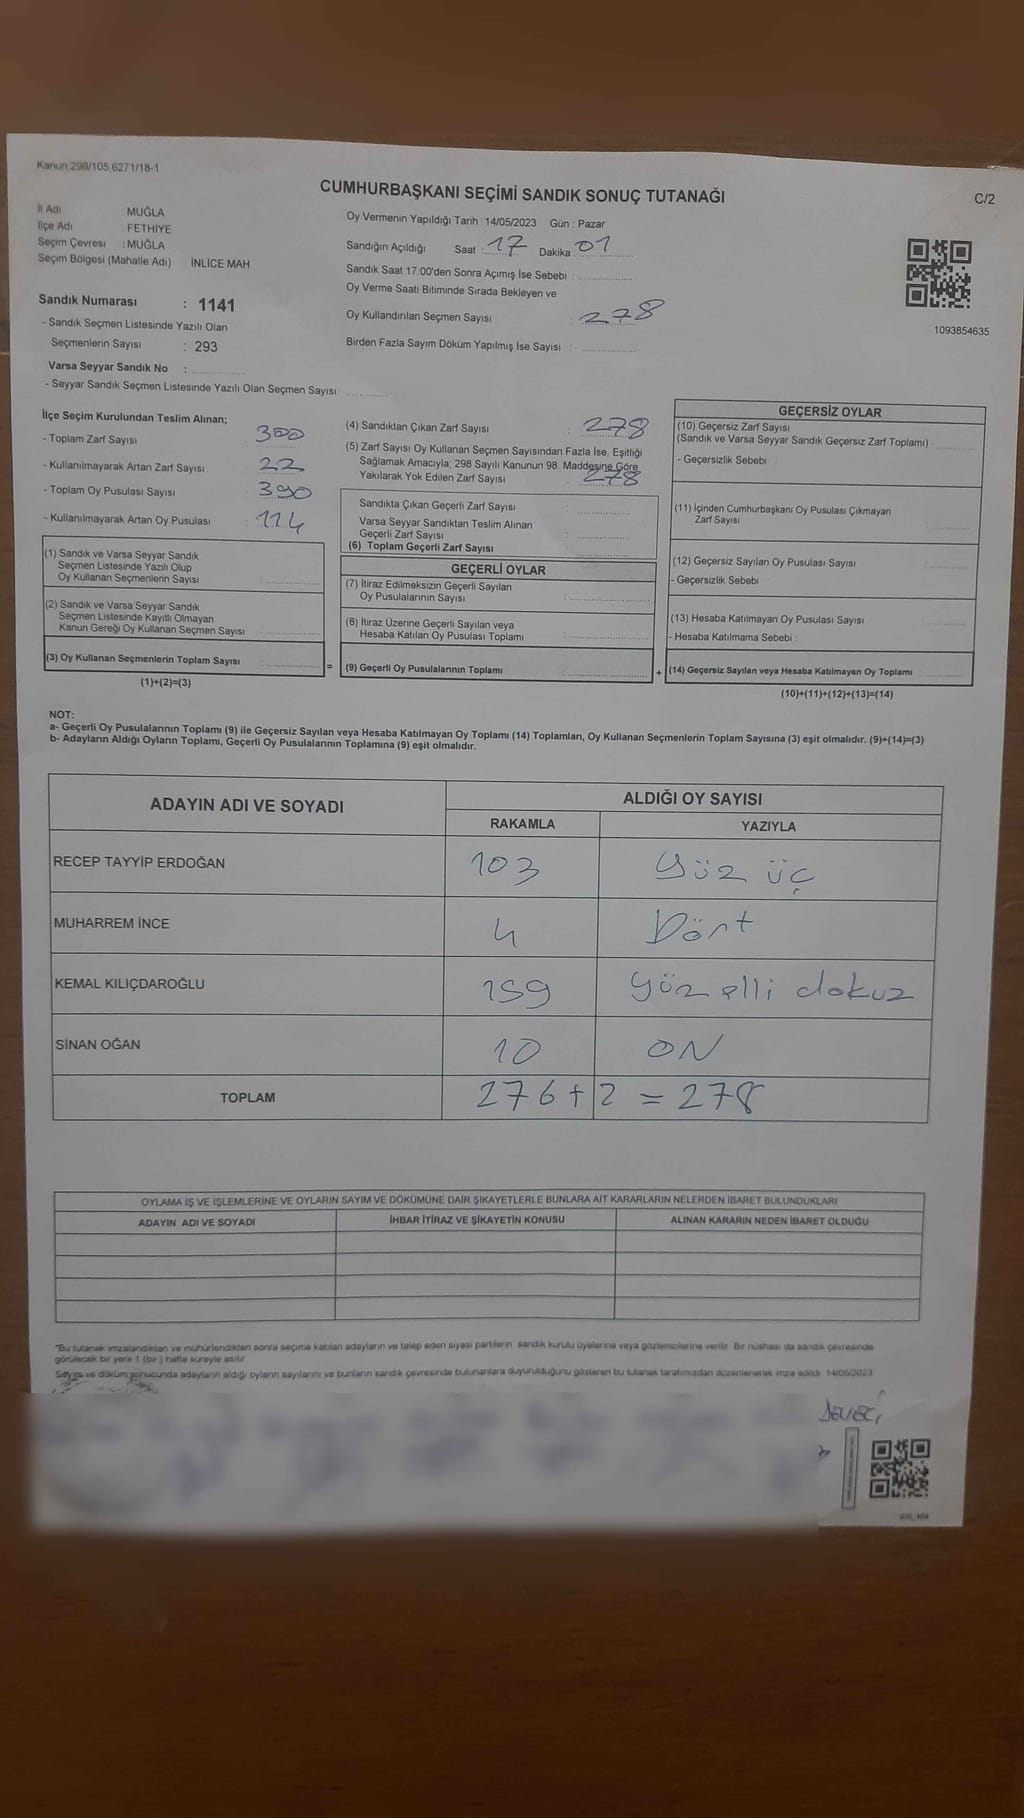 Kanun:298/105,6271/18-1
CUMHURBAŞKANI SEÇİMİ SANDIK SONUÇ TUTANAĞI
C/2
İl Adı MUĞLA
İlçe Adı FETHİYE
Seçim Çevresi : MUĞLA
Seçim Bölgesi (Mahalle Adı) İNLİCE MAH
Oy Vermenin Yapıldığı Tarih : 14/05/2023 Gün : Pazar
Sandığın Açıldığı Saat : 17 Dakika 01
Sandık Saat 17:00'den Sonra Açımış İse Sebebi :
Oy Verme Saati Bitiminde Sırada Bekleyen ve
Oy Kullandırılan Seçmen Sayısı : 278
Birden Fazla Sayım Döküm Yapılmış İse Sayısı :
1093854635
Sandık Numarası : 1141
- Sandık Seçmen Listesinde Yazılı Olan
Seçmenlerin Sayısı : 293
Varsa Seyyar Sandık No :
- Seyyar Sandık Seçmen Listesinde Yazılı Olan Seçmen Sayısı
İlçe Seçim Kurulundan Teslim Alınan;
- Toplam Zarf Sayısı 300
- Kullanılmayarak Artan Zarf Sayısı 22
- Toplam Oy Pusulası Sayısı 390
- Kullanılmayarak Artan Oy Pusulası : 114
(1) Sandık ve Varsa Seyyar Sandık
Seçmen Listesinde Yazılı Olup
Oy Kullanan Seçmenlerin Sayısı :
(2) Sandık ve Varsa Seyyar Sandık
Seçmen Listesinde Kayıtlı Olmayan
Kanun Gereği Oy Kullanan Seçmen Sayısı :
(3) Oy Kullanan Seçmenlerin Toplam Sayısı :
(1)+(2)=(3)
=
(4) Sandıktan Çıkan Zarf Sayısı : 278
(5) Zarf Sayısı Oy Kullanan Seçmen Sayısından Fazla İse, Eşitliği
Sağlamak Amacıyla; 298 Sayılı Kanunun 98. Maddesine Göre
Yakılarak Yok Edilen Zarf Sayısı : 278
Sandıkta Çıkan Geçerli Zarf Sayısı :
Varsa Seyyar Sandıktan Teslim Alınan
Geçerli Zarf Sayısı :
(6) Toplam Geçerli Zarf Sayısı
GEÇERLİ OYLAR
(7) İtiraz Edilmeksizin Geçerli Sayılan
Oy Pusulalarının Sayısı :
(8) İtiraz Üzerine Geçerli Sayılan veya
Hesaba Katılan Oy Pusulası Toplamı :
(9) Geçerli Oy Pusulalarının Toplamı :
+
GEÇERSİZ OYLAR
(10) Geçersiz Zarf Sayısı
(Sandık ve Varsa Seyyar Sandık Geçersiz Zarf Toplamı)
- Geçersizlik Sebebi
(11) İçinden Cumhurbaşkanı Oy Pusulası Çıkmayan
Zarf Sayısı
(12) Geçersiz Sayılan Oy Pusulası Sayısı
- Geçersizlik Sebebi
(13) Hesaba Katılmayan Oy Pusulası Sayısı
- Hesaba Katılmama Sebebi
(14) Geçersiz Sayılan veya Hesaba Katılmayan Oy Toplamı
(10)+(11)+(12)+(13)=(14)
NOT:
a- Geçerli Oy Pusulalarının Toplamı (9) ile Geçersiz Sayılan veya Hesaba Katılmayan Oy Toplamı (14) Toplamları, Oy Kullanan Seçmenlerin Toplam Sayısına (3) eşit olmalıdır. (9)+(14)=(3)
b- Adayların Aldığı Oyların Toplamı, Geçerli Oy Pusulalarının Toplamına (9) eşit olmalıdır.
ADAYIN ADI VE SOYADI ALDIĞI OY SAYISI
RAKAMLA YAZIYLA
RECEP TAYYİP ERDOĞAN 103 yüz üç
MUHARREM İNCE 4 Dört
KEMAL KILIÇDAROĞLU 159 yüz elli dokuz
SİNAN OĞAN 10 ON
TOPLAM 276 + 2 = 278
OYLAMA İŞ VE İŞLEMLERİNE VE OYLARIN SAYIM VE DÖKÜMÜNE DAİR ŞİKAYETLERLE BUNLARA AİT KARARLARIN NELERDEN İBARET BULUNDUKLARI
ADAYIN ADI VE SOYADI İHBAR İTİRAZ VE ŞİKAYETİN KONUSU ALINAN KARARIN NEDEN İBARET OLDUĞU
*Bu tutanak imzalandıktan ve mühürlendikten sonra seçime katılan adayların ve talep eden siyasi partilerin sandık kurulu üyelerine veya gözlemcilerine verilir. Bir nüshası da sandık çevresinde
görülecek bir yere 1 (bir) hafta süreyle asılır.
Sayım ve döküm sonucunda adayların aldığı oyların sayılarını ve bunların sandık çevresinde bulunanlara duyurulduğunu gösteren bu tutanak tarafımızdan düzenlenerek imza edildi. 14/05/2023